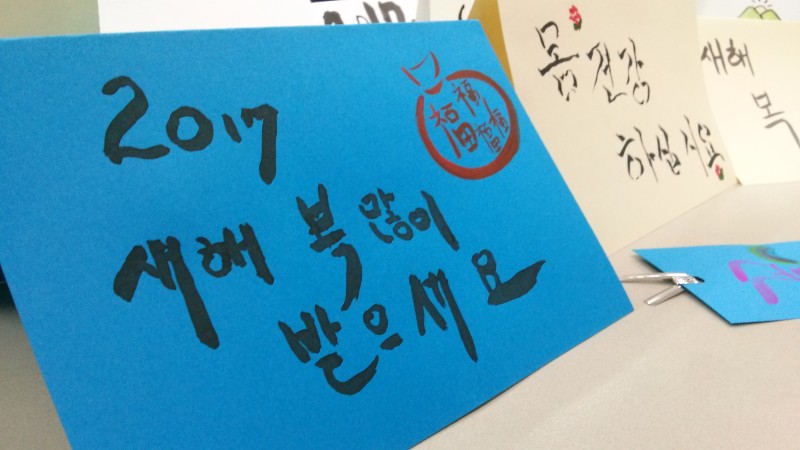 2017
새해 복 많이
받으세요
福福福福福
몸 건강
하십시옹
새해
복